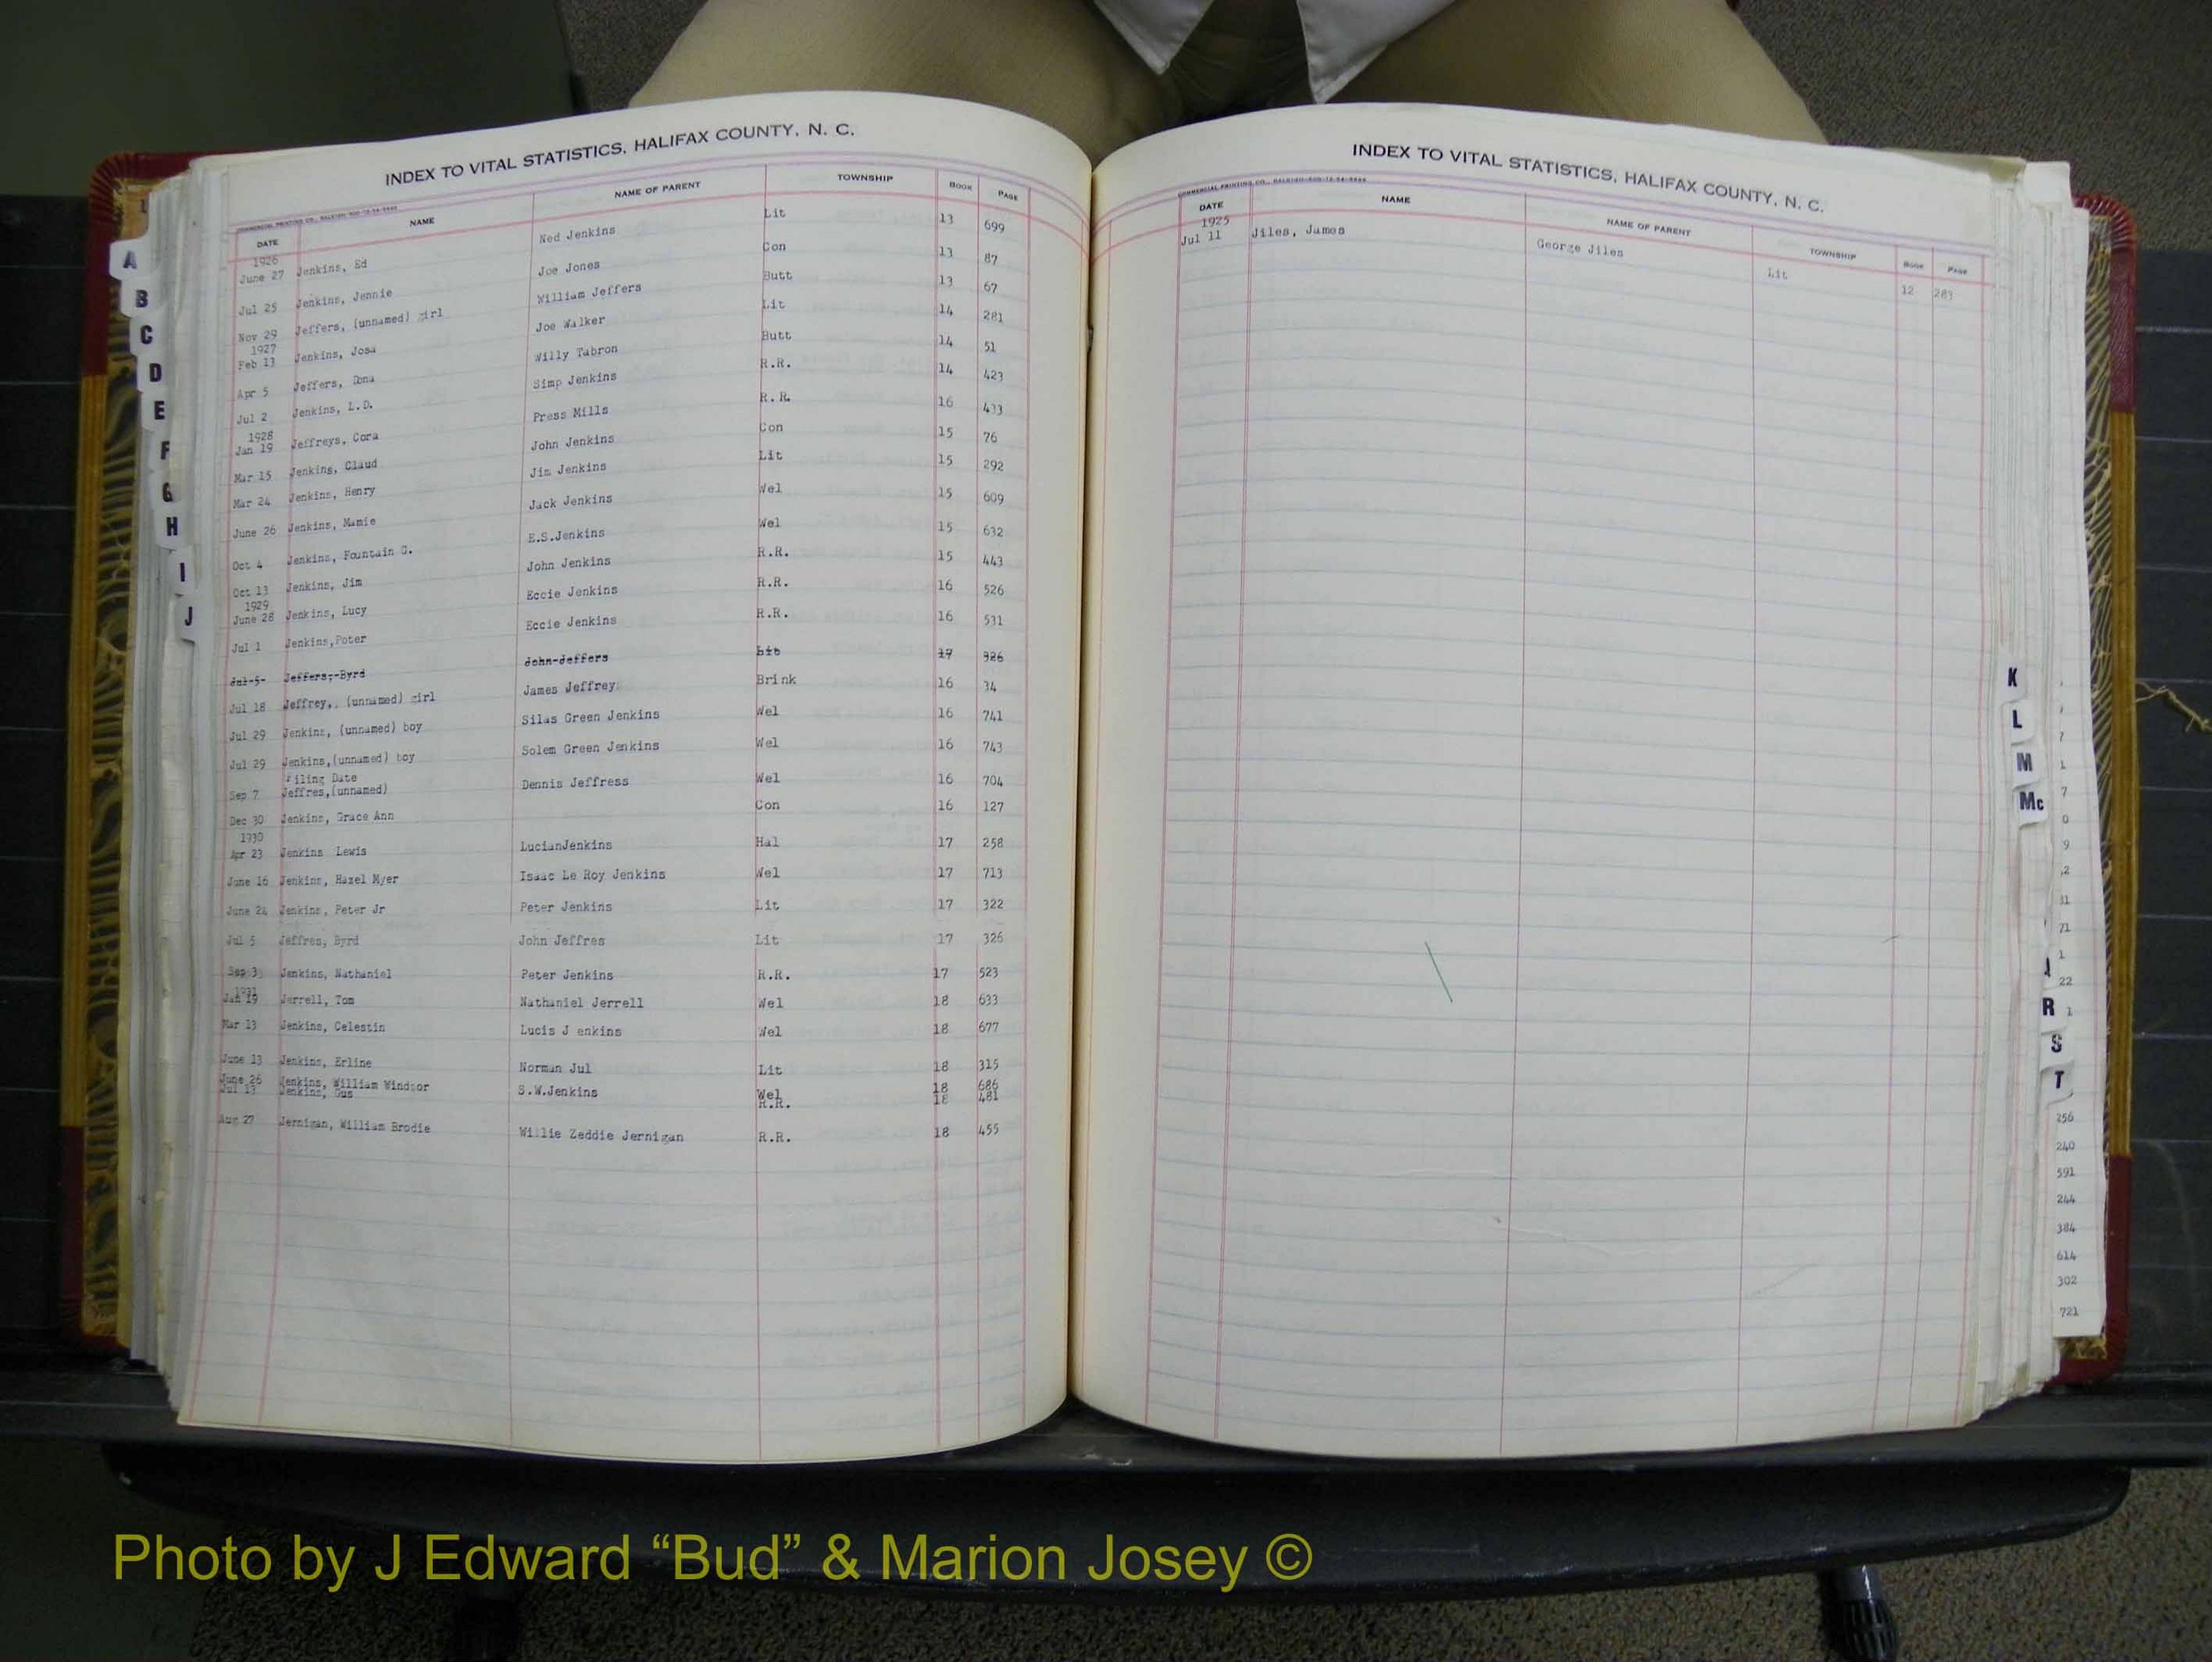 INDEX TO VITAL STATISTICS, HALIFAX COUNTY, N. C.
DATE NAME NAME OF PARENT TOWNSHIP BOOK PAGE
1926
June 27 Jenkins, Ed Ned Jenkins Lit 13 699
Jul 25 Jenkins, Jennie Joe Jones Con 13 87
Nov 29 Jeffers, (unnamed) girl William Jeffers Butt 13 67
1927
Feb 13 Jenkins, Josa Joe Walker Lit 14 281
Apr 5 Jeffers, Dona Willy Tabron Butt 14 51
Jul 2 Jenkins, L.D. Simp Jenkins R.R. 14 423
1928
Jan 19 Jeffreys, Cora Press Mills R.R. 16 433
Mar 15 Jenkins, Claud John Jenkins Con 15 76
Mar 24 Jenkins, Henry Jim Jenkins Lit 15 292
June 26 Jenkins, Mamie Jack Jenkins Wel 15 609
Oct 4 Jenkins, Fountain G. E.S.Jenkins Wel 15 632
Oct 13 Jenkins, Jim John Jenkins R.R. 15 443
1929
June 28 Jenkins, Lucy Eccie Jenkins R.R. 16 526
Jul 1 Jenkins,Peter Eccie Jenkins R.R. 16 531
Jul-5- Jeffers,-Byrd John-Jeffers Lit 17 326
Jul 18 Jeffrey,. (unnamed) girl James Jeffrey Brink 16 34
Jul 29 Jenkins, (unnamed) boy Silas Green Jenkins Wel 16 741
Jul 29 Jenkins,(unnamed) boy Solem Green Jenkins Wel 16 743
Filing Date
Sep 7 Jeffres,(unnamed) Dennis Jeffress Wel 16 704
Dec 30 Jenkins, Grace Ann Con 16 127
1930
Apr 23 Jenkins Lewis LucianJenkins Hal 17 258
June 16 Jenkins, Hazel Myer Isaac Le Roy Jenkins Wel 17 713
June 24 Jenkins, Peter Jr Peter Jenkins Lit 17 322
Jul 5 Jeffres, Byrd John Jeffres Lit 17 326
Sep 3 Jenkins, Nathaniel Peter Jenkins R.R. 17 523
1931
Jan 19 Jerrell, Tom Nathaniel Jerrell Wel 18 633
Mar 13 Jenkins, Celestin Lucis J enkins Wel 18 677
June 13 Jenkins, Erline Norman Jul Lit 18 315
June 26 Jenkins, William Windsor S.W.Jenkins Wel 18 686
Jul 13 Jenkins, Gus R.R. 18 481
Aug 27 Jernigan, William Brodie Willie Zeddie Jernigan R.R. 18 455
A
B
C
D
E
F
G
H
I
J
INDEX TO VITAL STATISTICS, HALIFAX COUNTY, N. C.
DATE NAME NAME OF PARENT TOWNSHIP BOOK PAGE
1925
Jul 11 Jiles, James George Jiles Lit 12 283
K
L
M
Mc
R
S
T
22
256
240
591
244
384
614
302
721
Photo by J Edward “Bud” & Marion Josey ©